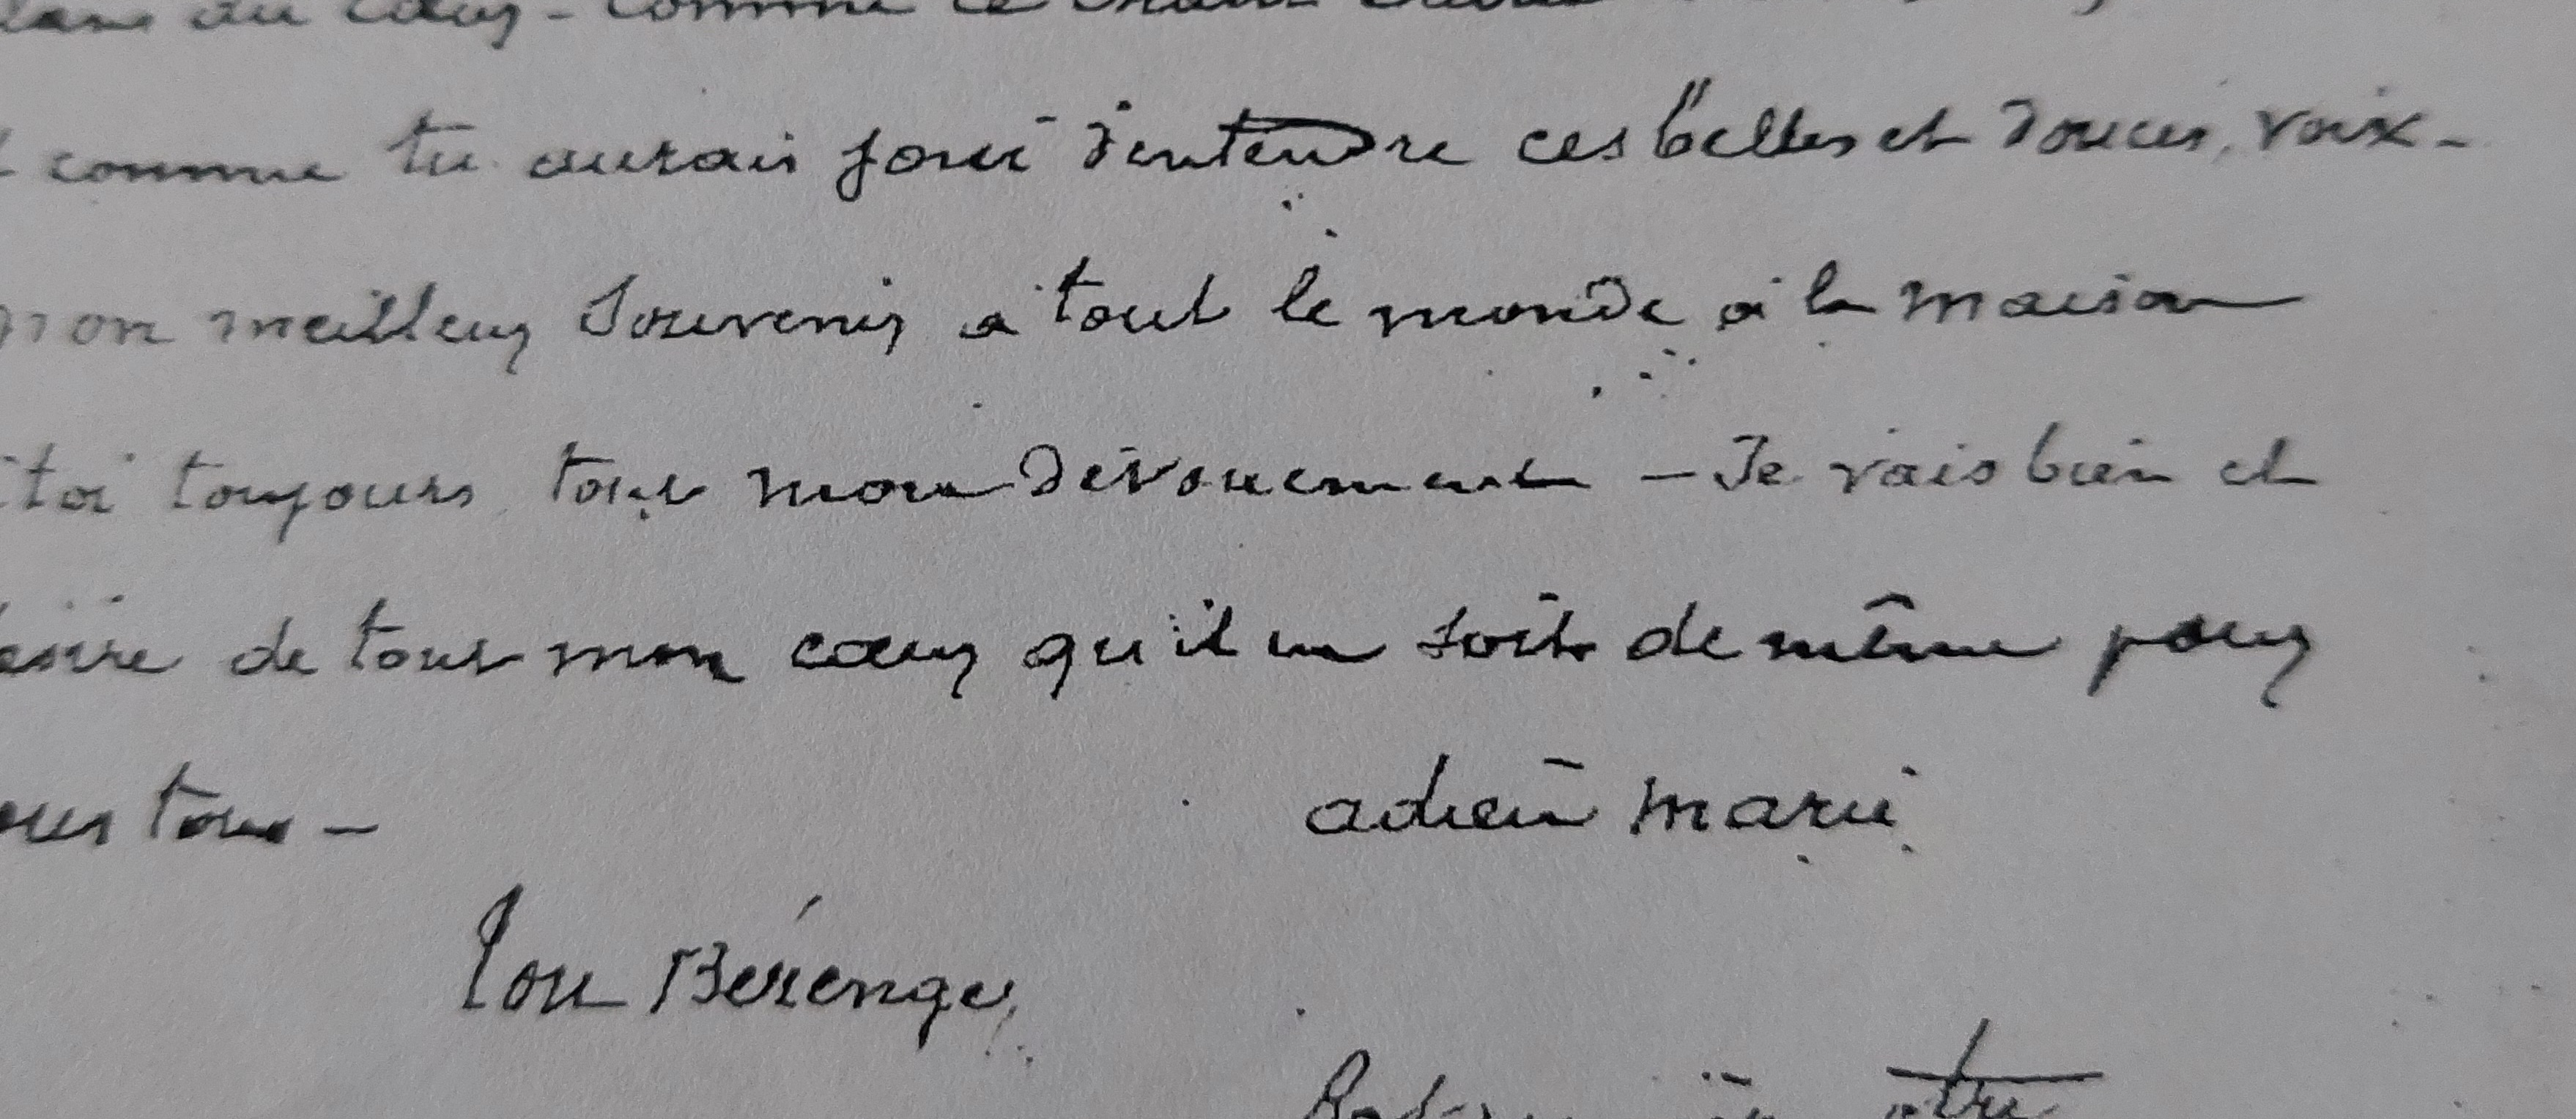 du cœur - comme ce
comme tu aurais joui d'entendre ces belles et douces voix -
mon meilleur Souvenir a tout le monde à la maison
toi toujours tout mon dévouement - Je vais bien et
desire de tout mon cœur qu'il en soit de même pour
vous tous -
adieu marie
lou Bérenger